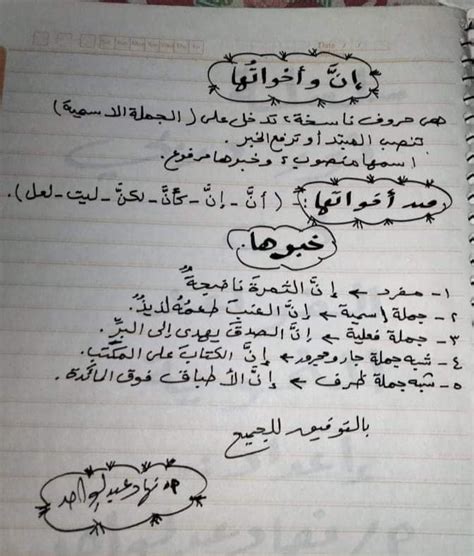 إنَّ وأخواتُها
هي حروف ناسخة، تدخل على (الجملة الاسمية)
تنصب المبتدأ وترفع الخبر.
اسمها منصوب، وخبرها مرفوع.
من أخواتها: (أنَّ - إنَّ - كأنَّ - لكنَّ - ليت - لعل).
خبرها:
١- مفرد ← إنَّ الثمرةَ ناضجةٌ
٢- جملة اسمية ← إنَّ العنبَ طعمُهُ لذيذٌ.
٣- جملة فعلية ← إنَّ الصدقَ يهدي إلى البرِّ.
٤- شبه جملة جار ومجرور ← إنَّ الكتابَ على المكتبِ.
٥- شبه جملة ظرف ← إنَّ الأطباقَ فوق المائدة.
بالتوفيق للجميع
نهاد عبد الواحد